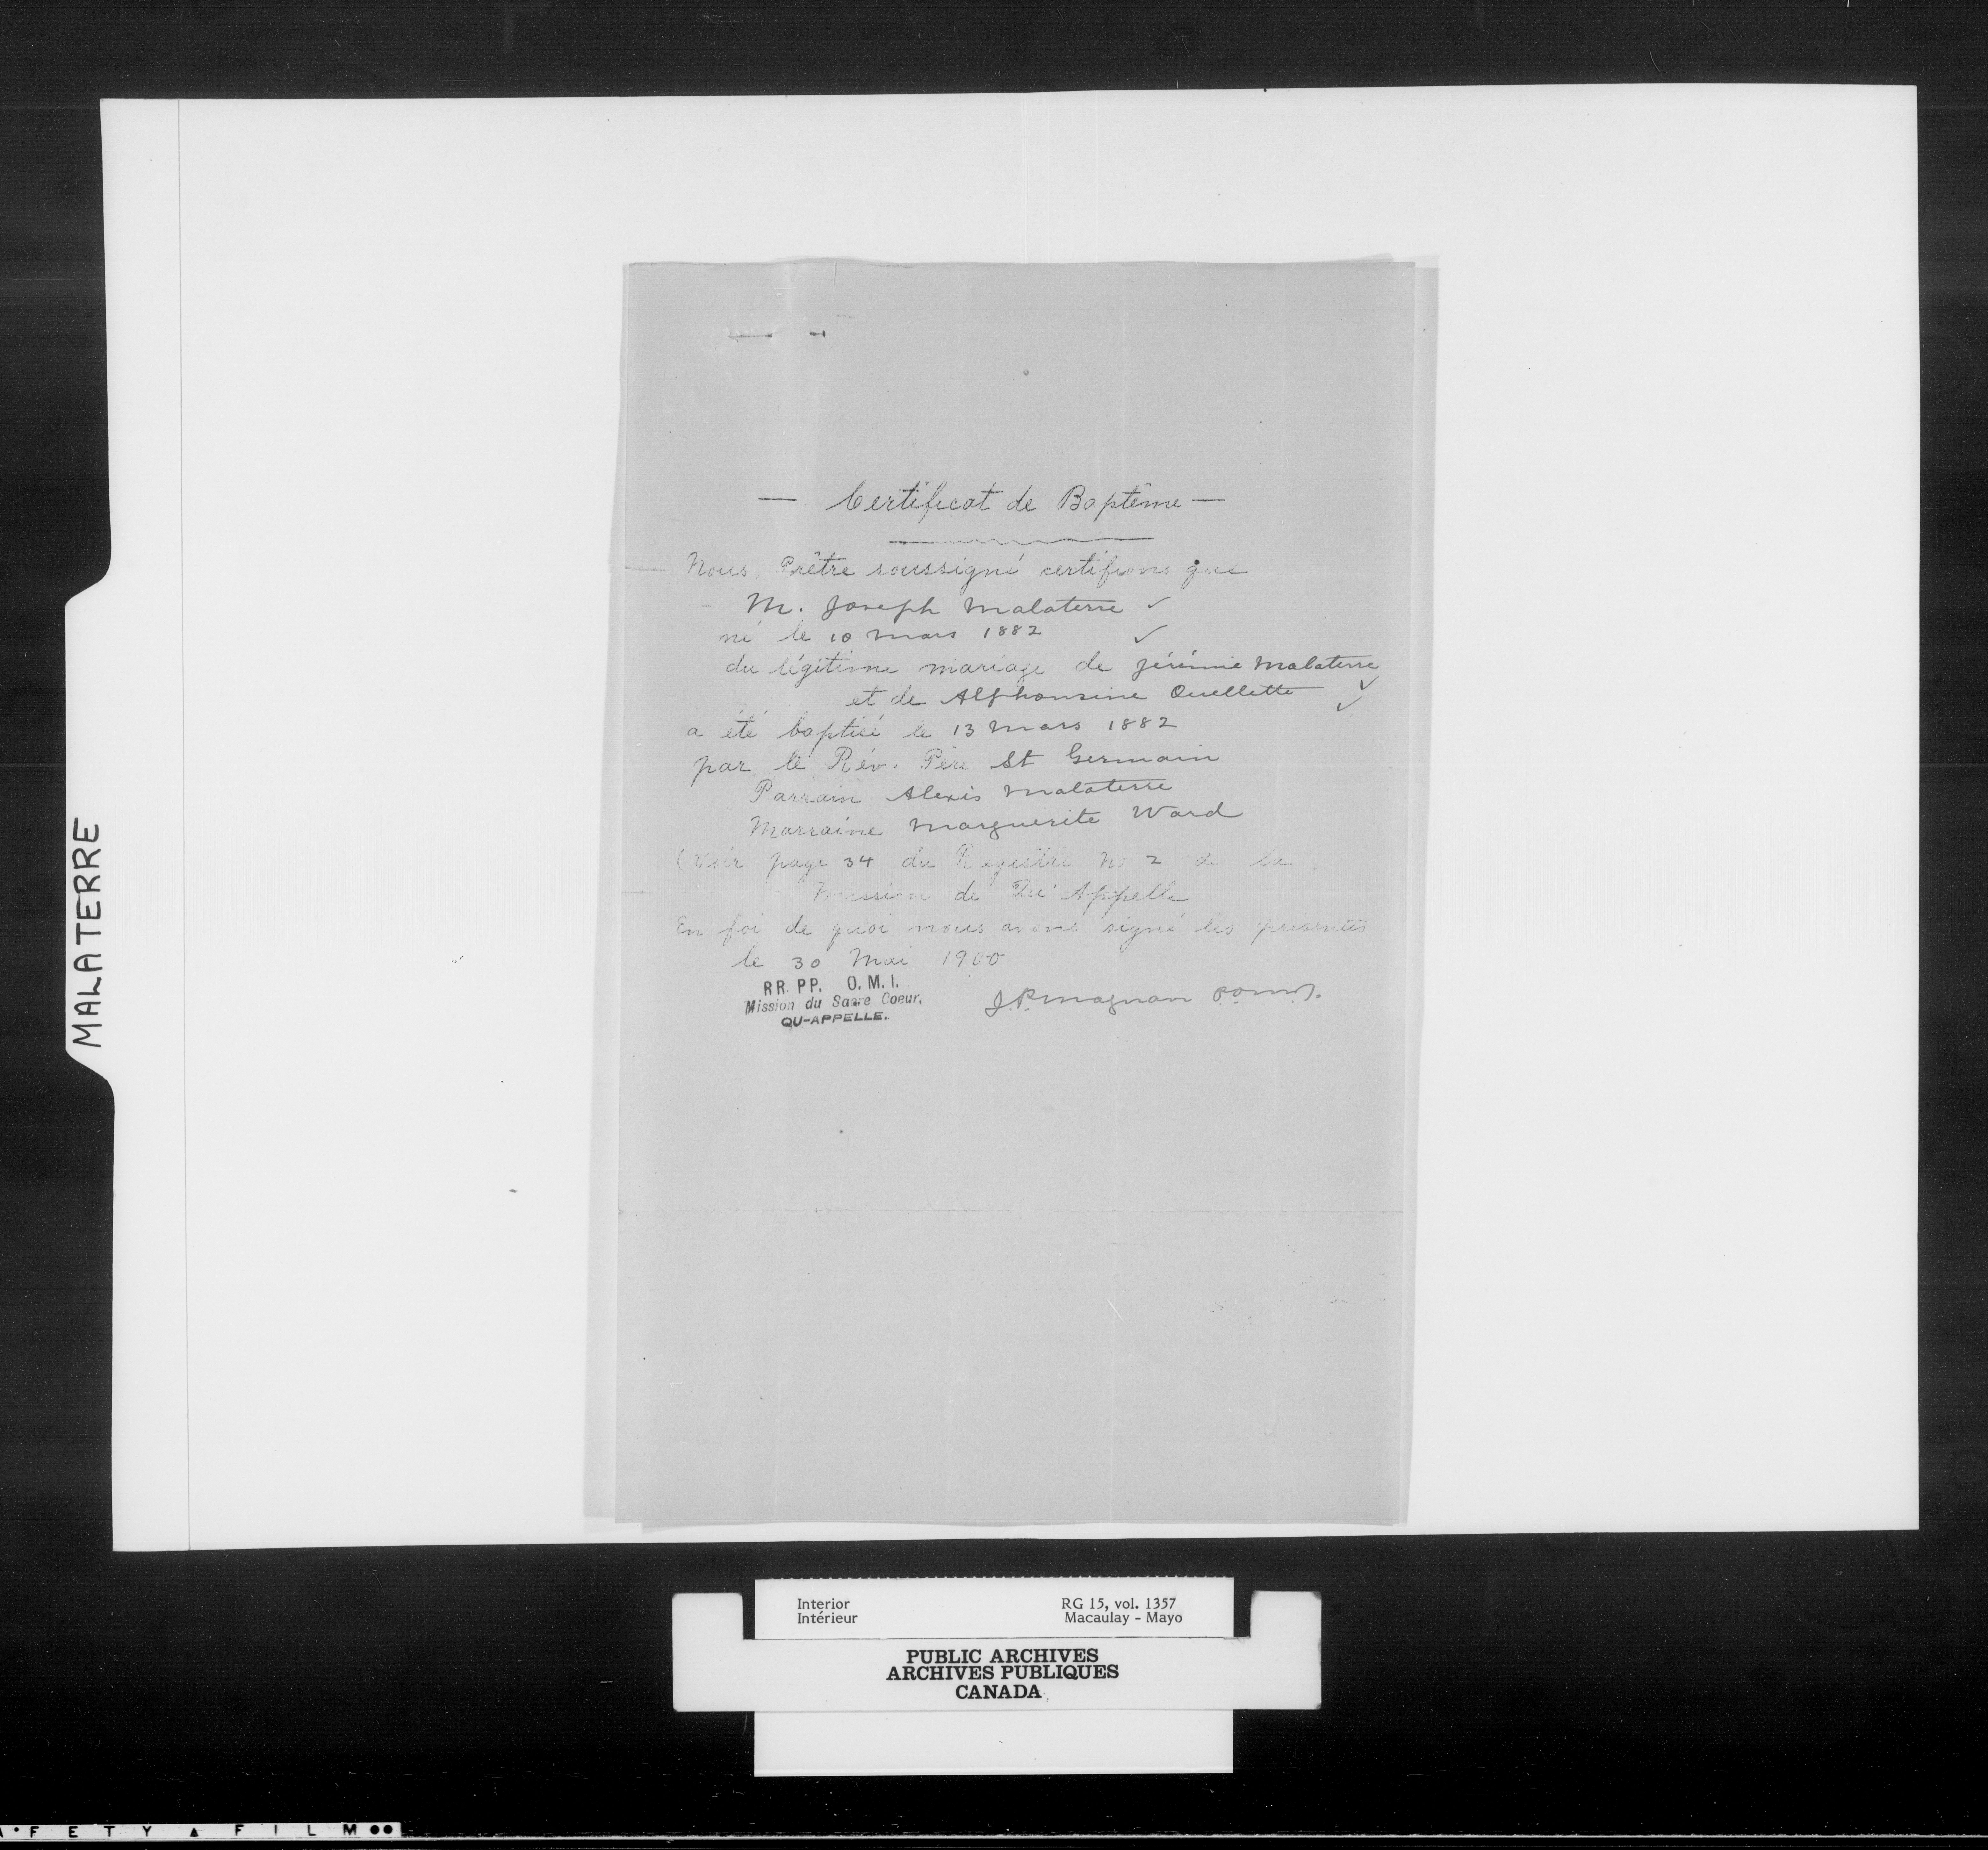 MALATERRE
— Certificat de Baptême —
Nous, Prêtre soussigné certifions que
- M. Joseph Malaterre ✓
né le 10 Mars 1882 ✓
du légitime mariage de Jérémie Malaterre ✓
et de Alphonsine Ouellette ✓
a été baptisé le 13 Mars 1882
par le Rév. Père St Germain
Parrain Alexis Malaterre
Marraine Marguerite Ward
(Voir page 34 du Registre No 2 de la
Mission de Qu'Appelle
En foi de quoi nous avons signé les présentes
le 30 Mai 1900
RR. PP. O. M. I.
Mission du Sacre Coeur,
QU-APPELLE.
J.P. Magnan
Interior RG 15, vol. 1357
Intérieur Macaulay - Mayo
PUBLIC ARCHIVES
ARCHIVES PUBLIQUES
CANADA
A • F E T Y ▲ F I L M ●●